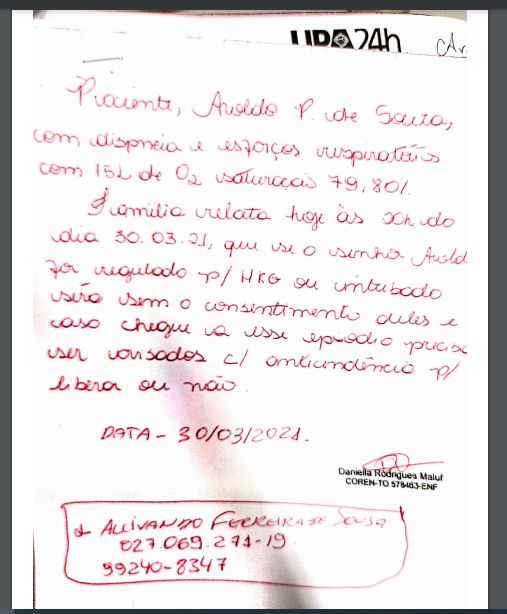 UPA 24h
Paciente, Aroldo P. de Souza,
com dispneia e esforços respiratórios
com 15L de O2 saturação 79,80%.
Familia relata hoje às do
dia 30.03.21, que se o senhor Arold
for regulado p/ HKG ou intubado
será sem o consentimento deles e
caso chegue va esse episodio precisa
ser avisados c/ antecendência p/
libera ou não.
DATA - 30/03/2021.
Daniella Rodrigues Maluf
COREN-TO 578463-ENF
ALLIVANDO FERREIRA DE SOUSA
027.069.271-19
99240-8347